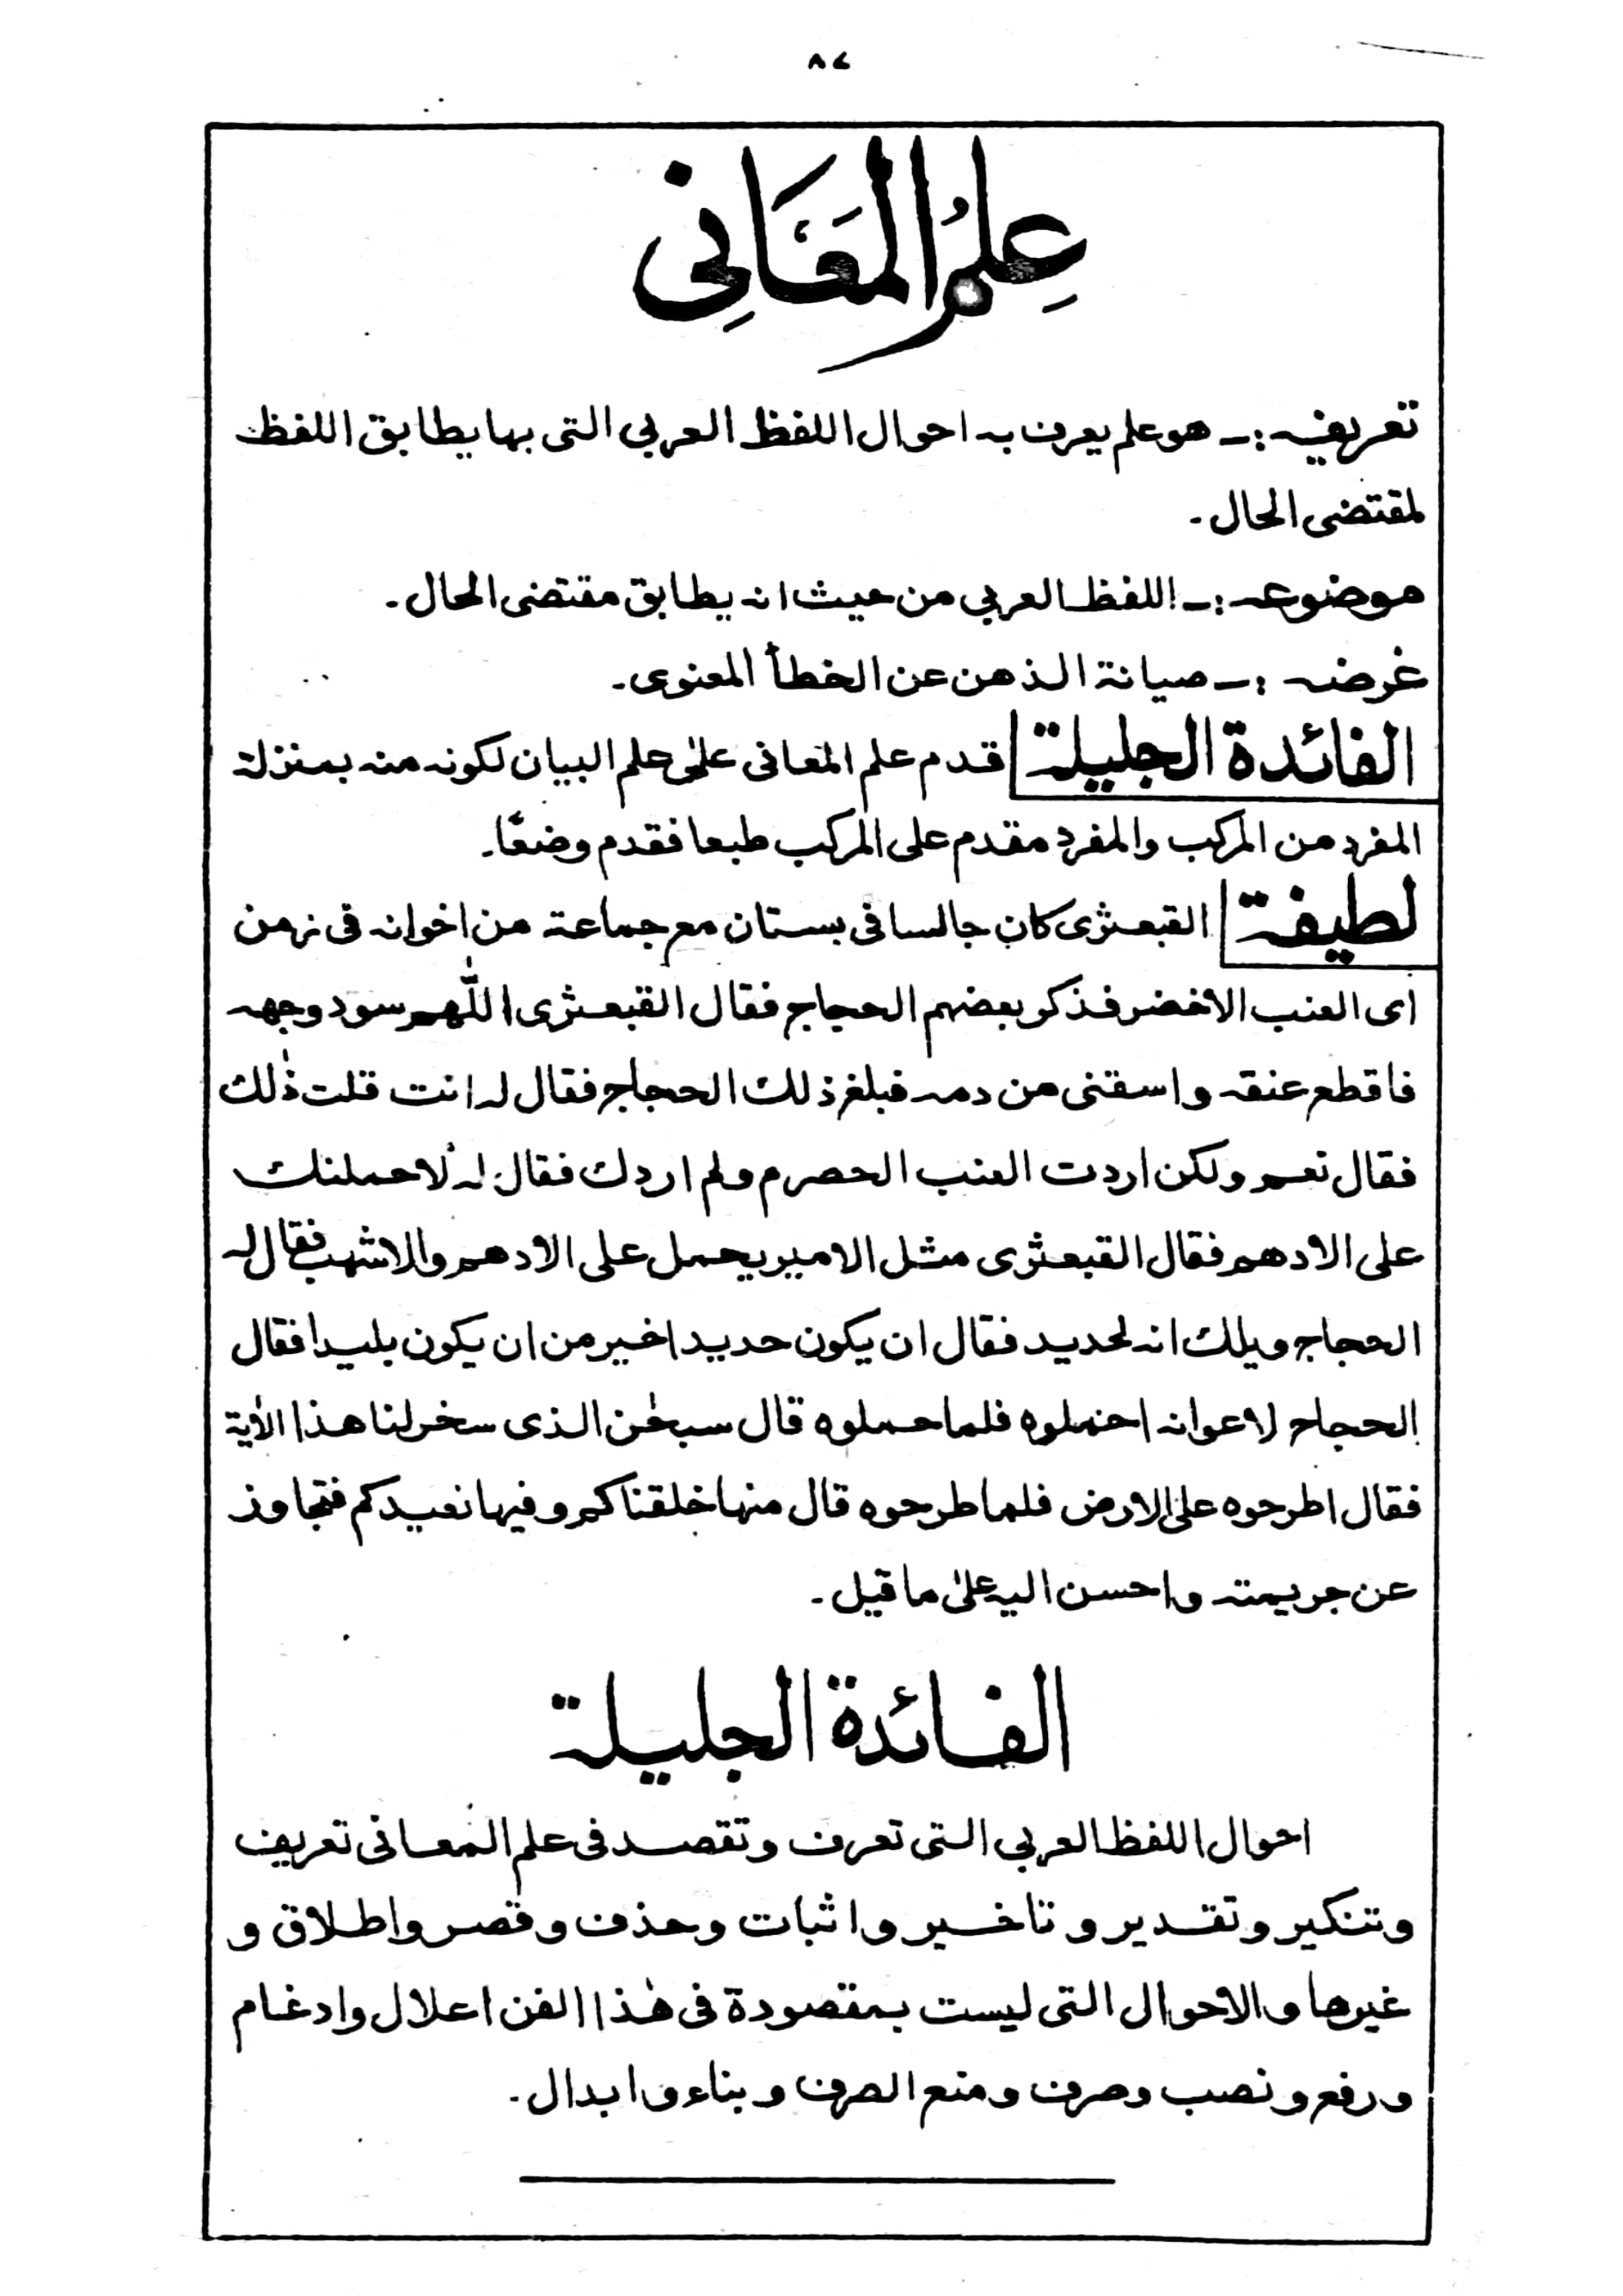 ٨٧
عِلمُ المَعَانِی
تعریفہ :۔ ھو علم یعرف بہ احوال اللفظ العربی التی بھا یطابق اللفظ
لمقتضی الحال۔
موضوعہ :۔ اللفظ العربی من حیث انہ یطابق مقتضی الحال۔
غرضہ :۔ صیانۃ الذھن عن الخطأ المعنوی۔
الفائدۃ الجلیلۃ قدم علم المعانی علیٰ علم البیان لکونہ منہ بمنزلۃ
المفرد من المرکب والمفرد مقدم علی المرکب طبعا فقدم وضعًا۔
لطیفۃ القبعثری کان جالسا فی بستان مع جماعۃ من اخوانہ فی زمن
ای العنب الاخضر فذکر بعضہم الحجاج فقال القبعثری اللّٰھم سود وجھہ
فاقطع عنقہ واسقنی من دمہ فبلغ ذلک الحجاج فقال لہ انت قلت ذٰلک
فقال نعم ولکن اردت العنب الحصرم ولم اردك فقال لہ لاحملنک
علی الادھم فقال القبعثری مثل الامیر یحمل علی الادھم والاشہب فقال لہ
الحجاج ویلک انہ لحدید فقال ان یکون حدیدا خیر من ان یکون بلیدا فقال
الحجاج لاعوانہ احملوہ فلما حملوہ قال سبحٰن الذی سخر لنا ھذا الاٰیۃ
فقال اطرحوہ علی الارض فلما طرحوہ قال منھا خلقناکم و فیھا نعیدکم فتجاوز
عن جریمتہ واحسن الیہ علیٰ ما قیل۔
الفائدۃ الجلیلۃ
احوال اللفظ العربی التی تعرف و تقصد فی علم المعانی تعریف
وتنکیر و تقدیر و تاخیر و اثبات و حذف و قصر و اطلاق و
غیرھا والاحوال التی لیست بمقصودۃ فی ھٰذا الفن اعلال وادغام
و رفع و نصب و صرف و منع الصرف و بناء و ابدال۔